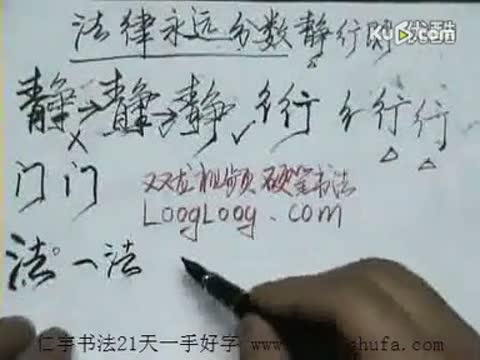 法律永远分数静行财
静→静→静 行 行行
门门 双龙视频硬笔书法
LoogLoog.com
法 一 法
仁宇书法21天一手好字 www.
shufa.com
Ku6优酷